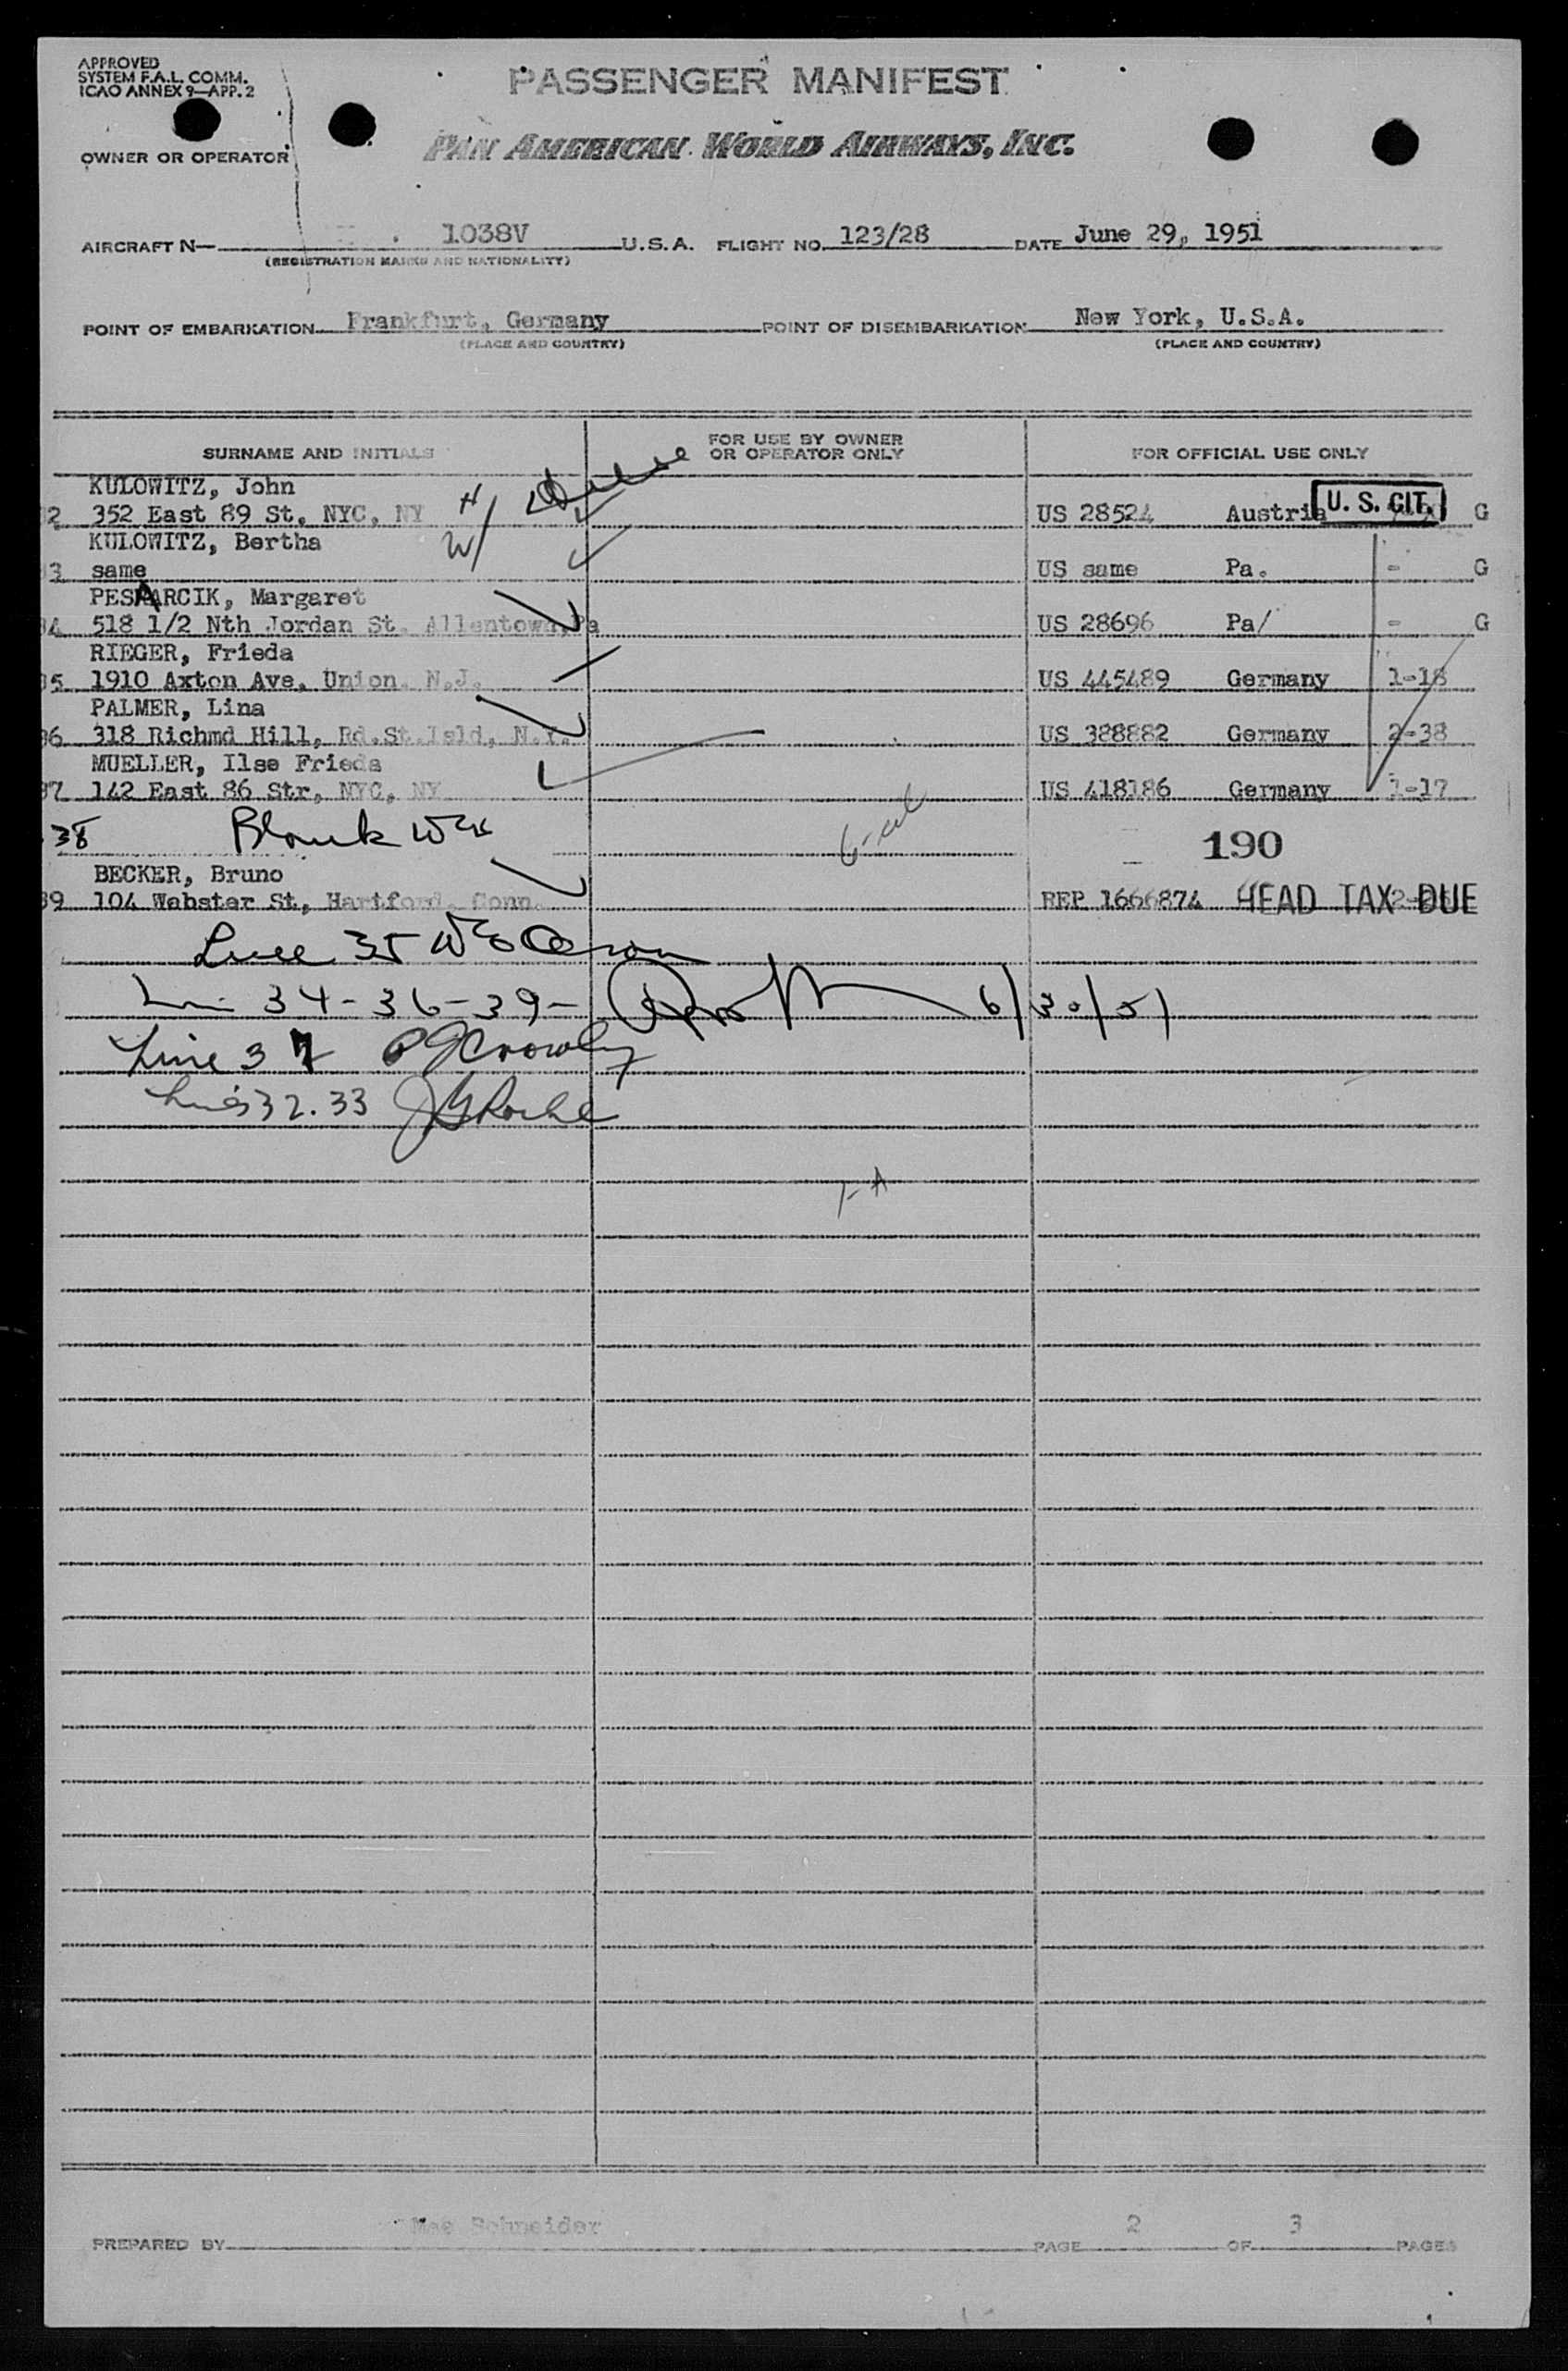 APPROVED
SYSTEM F.A.L. COMM.
ICAO ANNEX 9—APP. 2
PASSENGER MANIFEST
OWNER OR OPERATOR
PAN AMERICAN WORLD AIRWAYS, INC.
AIRCRAFT N— 1038V U.S.A. FLIGHT NO. 123/28 DATE June 29, 1951
(REGISTRATION MARKS AND NATIONALITY)
POINT OF EMBARKATION Frankfurt, Germany POINT OF DISEMBARKATION New York, U.S.A.
(PLACE AND COUNTRY) (PLACE AND COUNTRY)
SURNAME AND INITIALS FOR USE BY OWNER OR OPERATOR ONLY FOR OFFICIAL USE ONLY
KULOWITZ, John H
2 352 East 89 St, NYC, NY W/ US 28524 Austria U. S. CIT. G
KULOWITZ, Bertha
3 same US same Pa. - G
PESAARCIK, Margaret
4 518 1/2 Nth Jordan St. Allentown, Pa US 28696 Pa/ - G
RIEGER, Frieda
35 1910 Axton Ave, Union, N.J. US 445489 Germany 1-18
PALMER, Lina
36 318 Richmd Hill, Rd.St.Isld, N.Y. US 388882 Germany 2-38
MUELLER, Ilse Frieda
37 142 East 86 Str, NYC, NY US 418186 Germany 1-17
38 Blank 190
BECKER, Bruno
39 104 Webster St, Hartford, Conn. REP 1666874 HEAD TAX DUE
Line 35
34-36-39- 6/30/51
Line 37 Crowley
Lines 32.33 JG Roche
PREPARED BY Mae Schneider PAGE 2 OF 3 PAGES